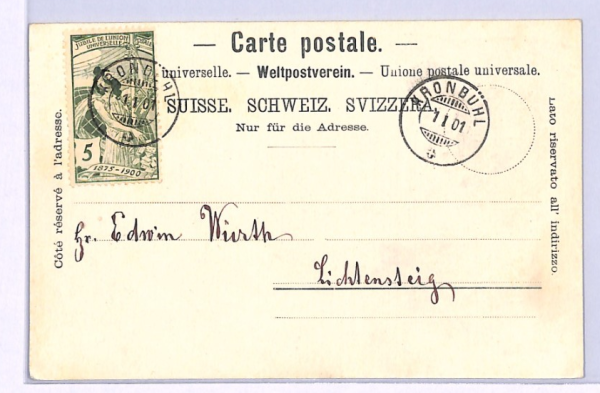 JUBILÉ DE L'UNION
UNIVERSELLE
5
1875-1900
KRONBÜHL
1 I 01
— Carte postale. —
universelle. — Weltpostverein. — Unione postale universale.
SUISSE. SCHWEIZ. SVIZZERA.
Nur für die Adresse.
KRONBÜHL
1 I 01
Côté réservé à l'adresse.
Lato riservato all' indirizzo.
Hr. Edwin Wirth
Lichtensteig